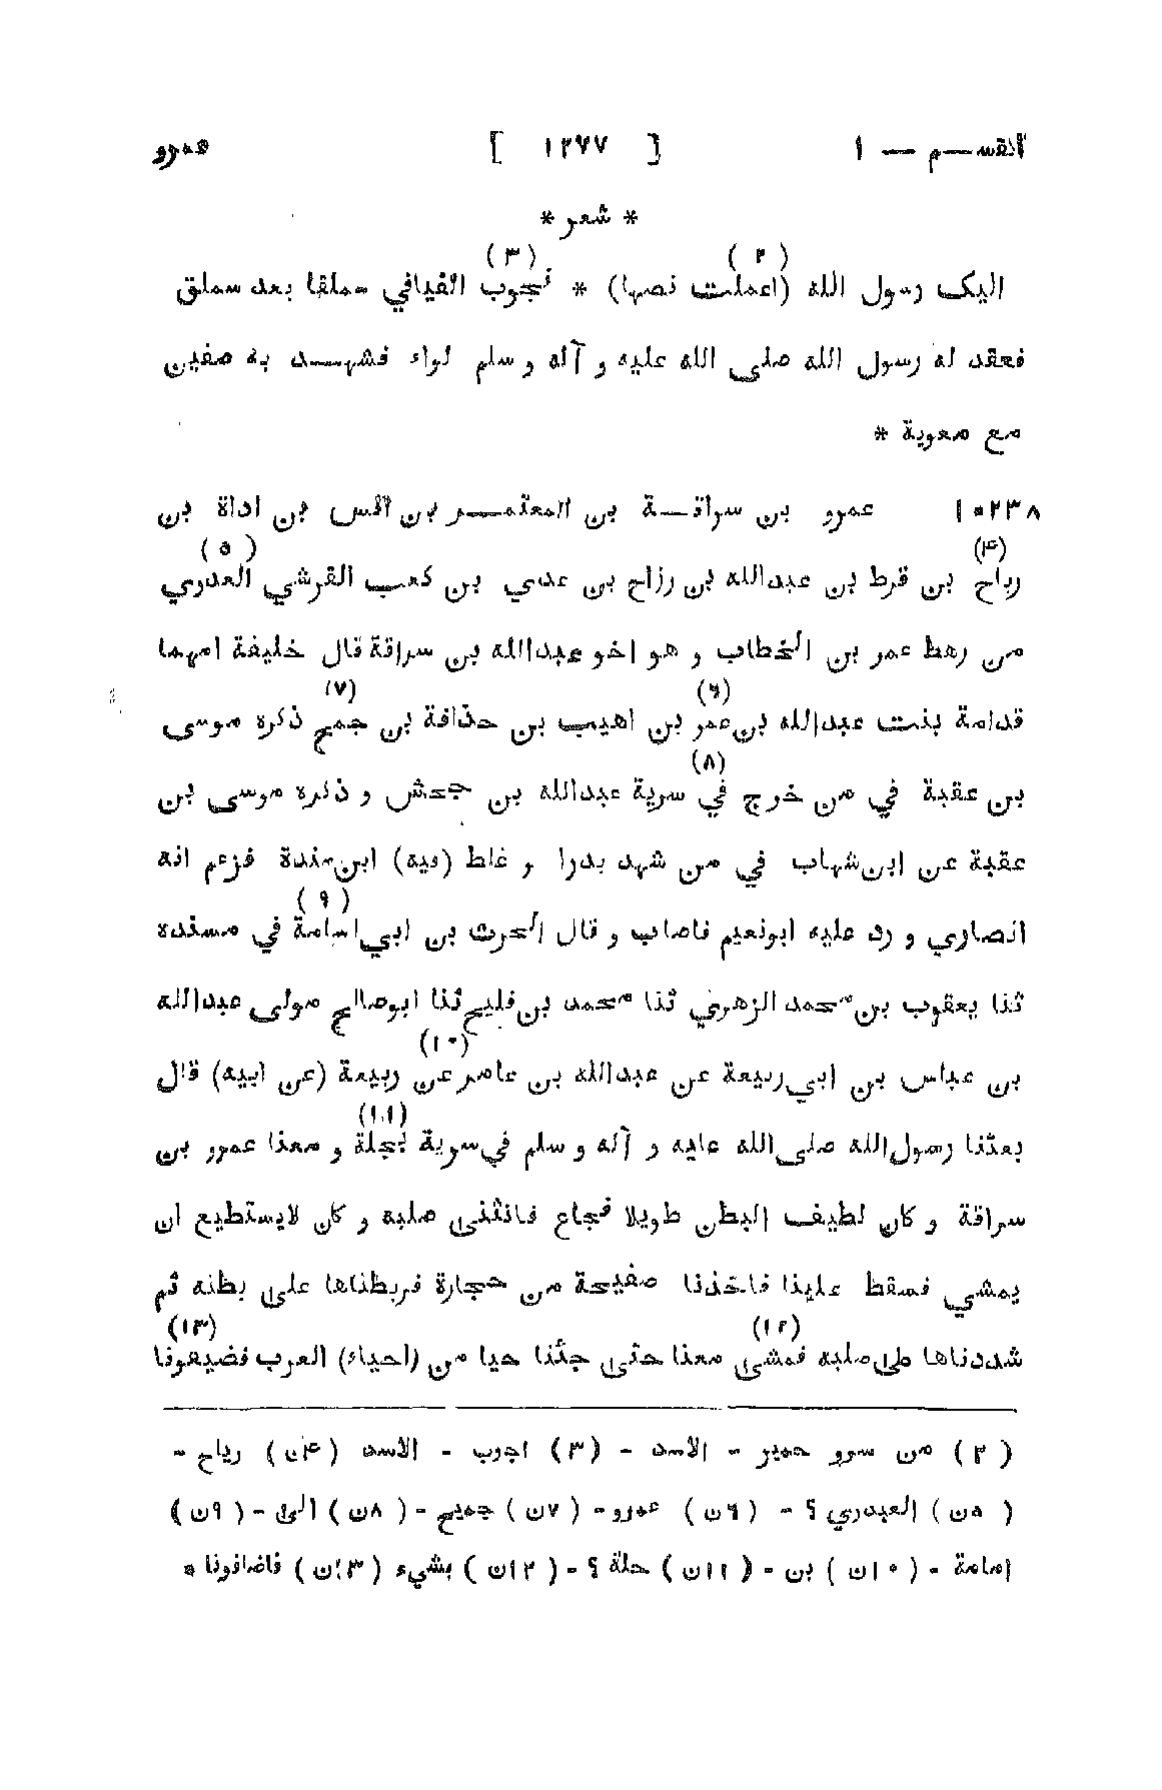 القسم — ١ [ ١٢٧٧ ] عمرو
* شعر *
(٢) (٣)
اليک رسول الله (اعملت نصها) * نجوب الفيافي سملقا بعد سملق
فعقد له رسول الله صلى الله عليه و آله و سلم لواء فشهد به صفين
مع معوية *
١٠٢٣٨ عمرو بن سراقة بن المعتمر بن انس بن اداة بن
(۴) (٥)
رياح بن قرط بن عبدالله بن رزاح بن عدي بن كعب القرشي العدوي
من رهط عمر بن الخطاب و هو اخو عبدالله بن سراقة قال خليفة امهما
(٦) (٧)
قدامة بنت عبدالله بن عمر بن اهيب بن حذافة بن جمح ذكره موسى
(٨)
بن عقبة في من خرج في سرية عبدالله بن جحش و ذكره موسى بن
عقبة عن ابن شهاب في من شهد بدرا و غلط (فيه) ابن مندة فزعم انه
(٩)
انصاري و رد عليه ابونعيم فاصاب و قال الحرث بن ابي اسامة في مسنده
ثنا يعقوب بن محمد الزهري ثنا محمد بن فليح ثنا ابوصالح مولى عبدالله
(١٠)
بن عباس بن ابي ربيعة عن عبدالله بن عامر عن ربيعة (عن ابيه) قال
(١١)
بعثنا رسول الله صلى الله عليه و آله و سلم في سرية نجلة و معنا عمرو بن
سراقة و كان لطيف البطن طويلا فجاع فانثنى صلبه و كان لايستطيع ان
يمشي فسقط علينا فاخذنا صفيحة من حجارة فربطناها على بطنه ثم
(١٢) (١٣)
شددناها على صلبه فمشى معنا حتى جئنا حيا من (احياء) العرب فضيفونا
(٢) من سرو حمير - الاسد - (٣) اجوب - الاسد (۴ن) رياح -
(٥ن) العبدري ؟ - (٦ن) عمرو - (٧ن) جميح - (٨ن) الى - (٩ن)
امامة - (١٠ن) بن - (١١ن) حلة ؟ - (١٢ن) بشيء (١٣ن) فاضافونا *